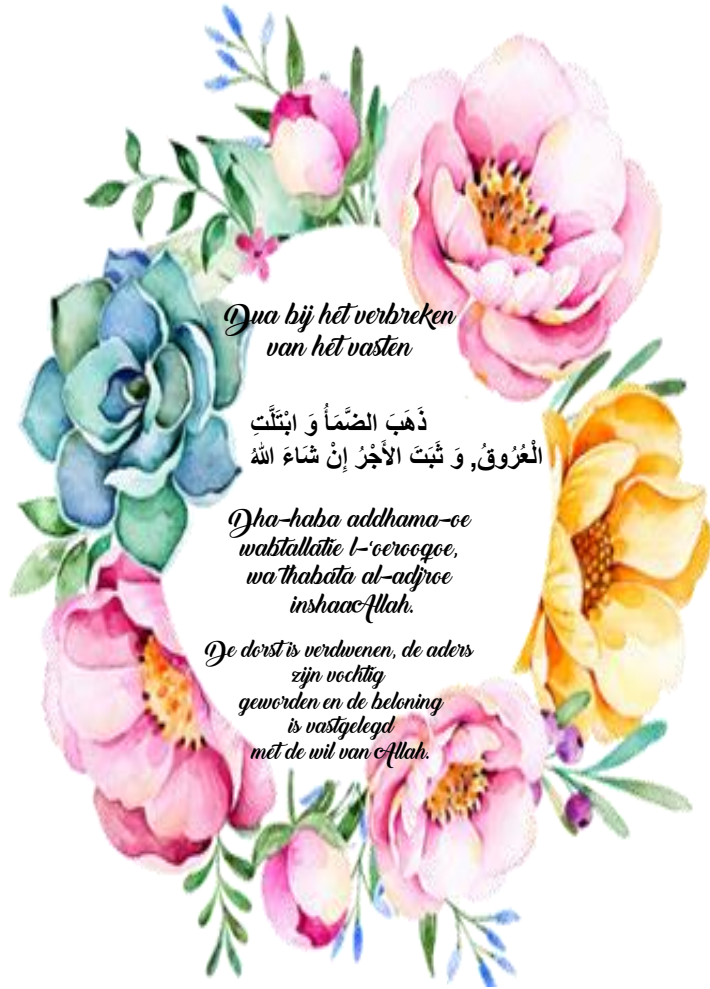 Dua bij het verbreken
van het vasten
ذَهَبَ الضَّمَأُ وَ ابْتَلَّتِ
الْعُرُوقُ, وَ ثَبَتَ الأَجْرُ إِنْ شَاءَ اللهُ
Dha-haba addhama-oe
wabtallatie l-‘oerooqoe,
wa thabata al-adjroe
inshaaAllah.
De dorst is verdwenen, de aders
zijn vochtig
geworden en de beloning
is vastgelegd
met de wil van Allah.